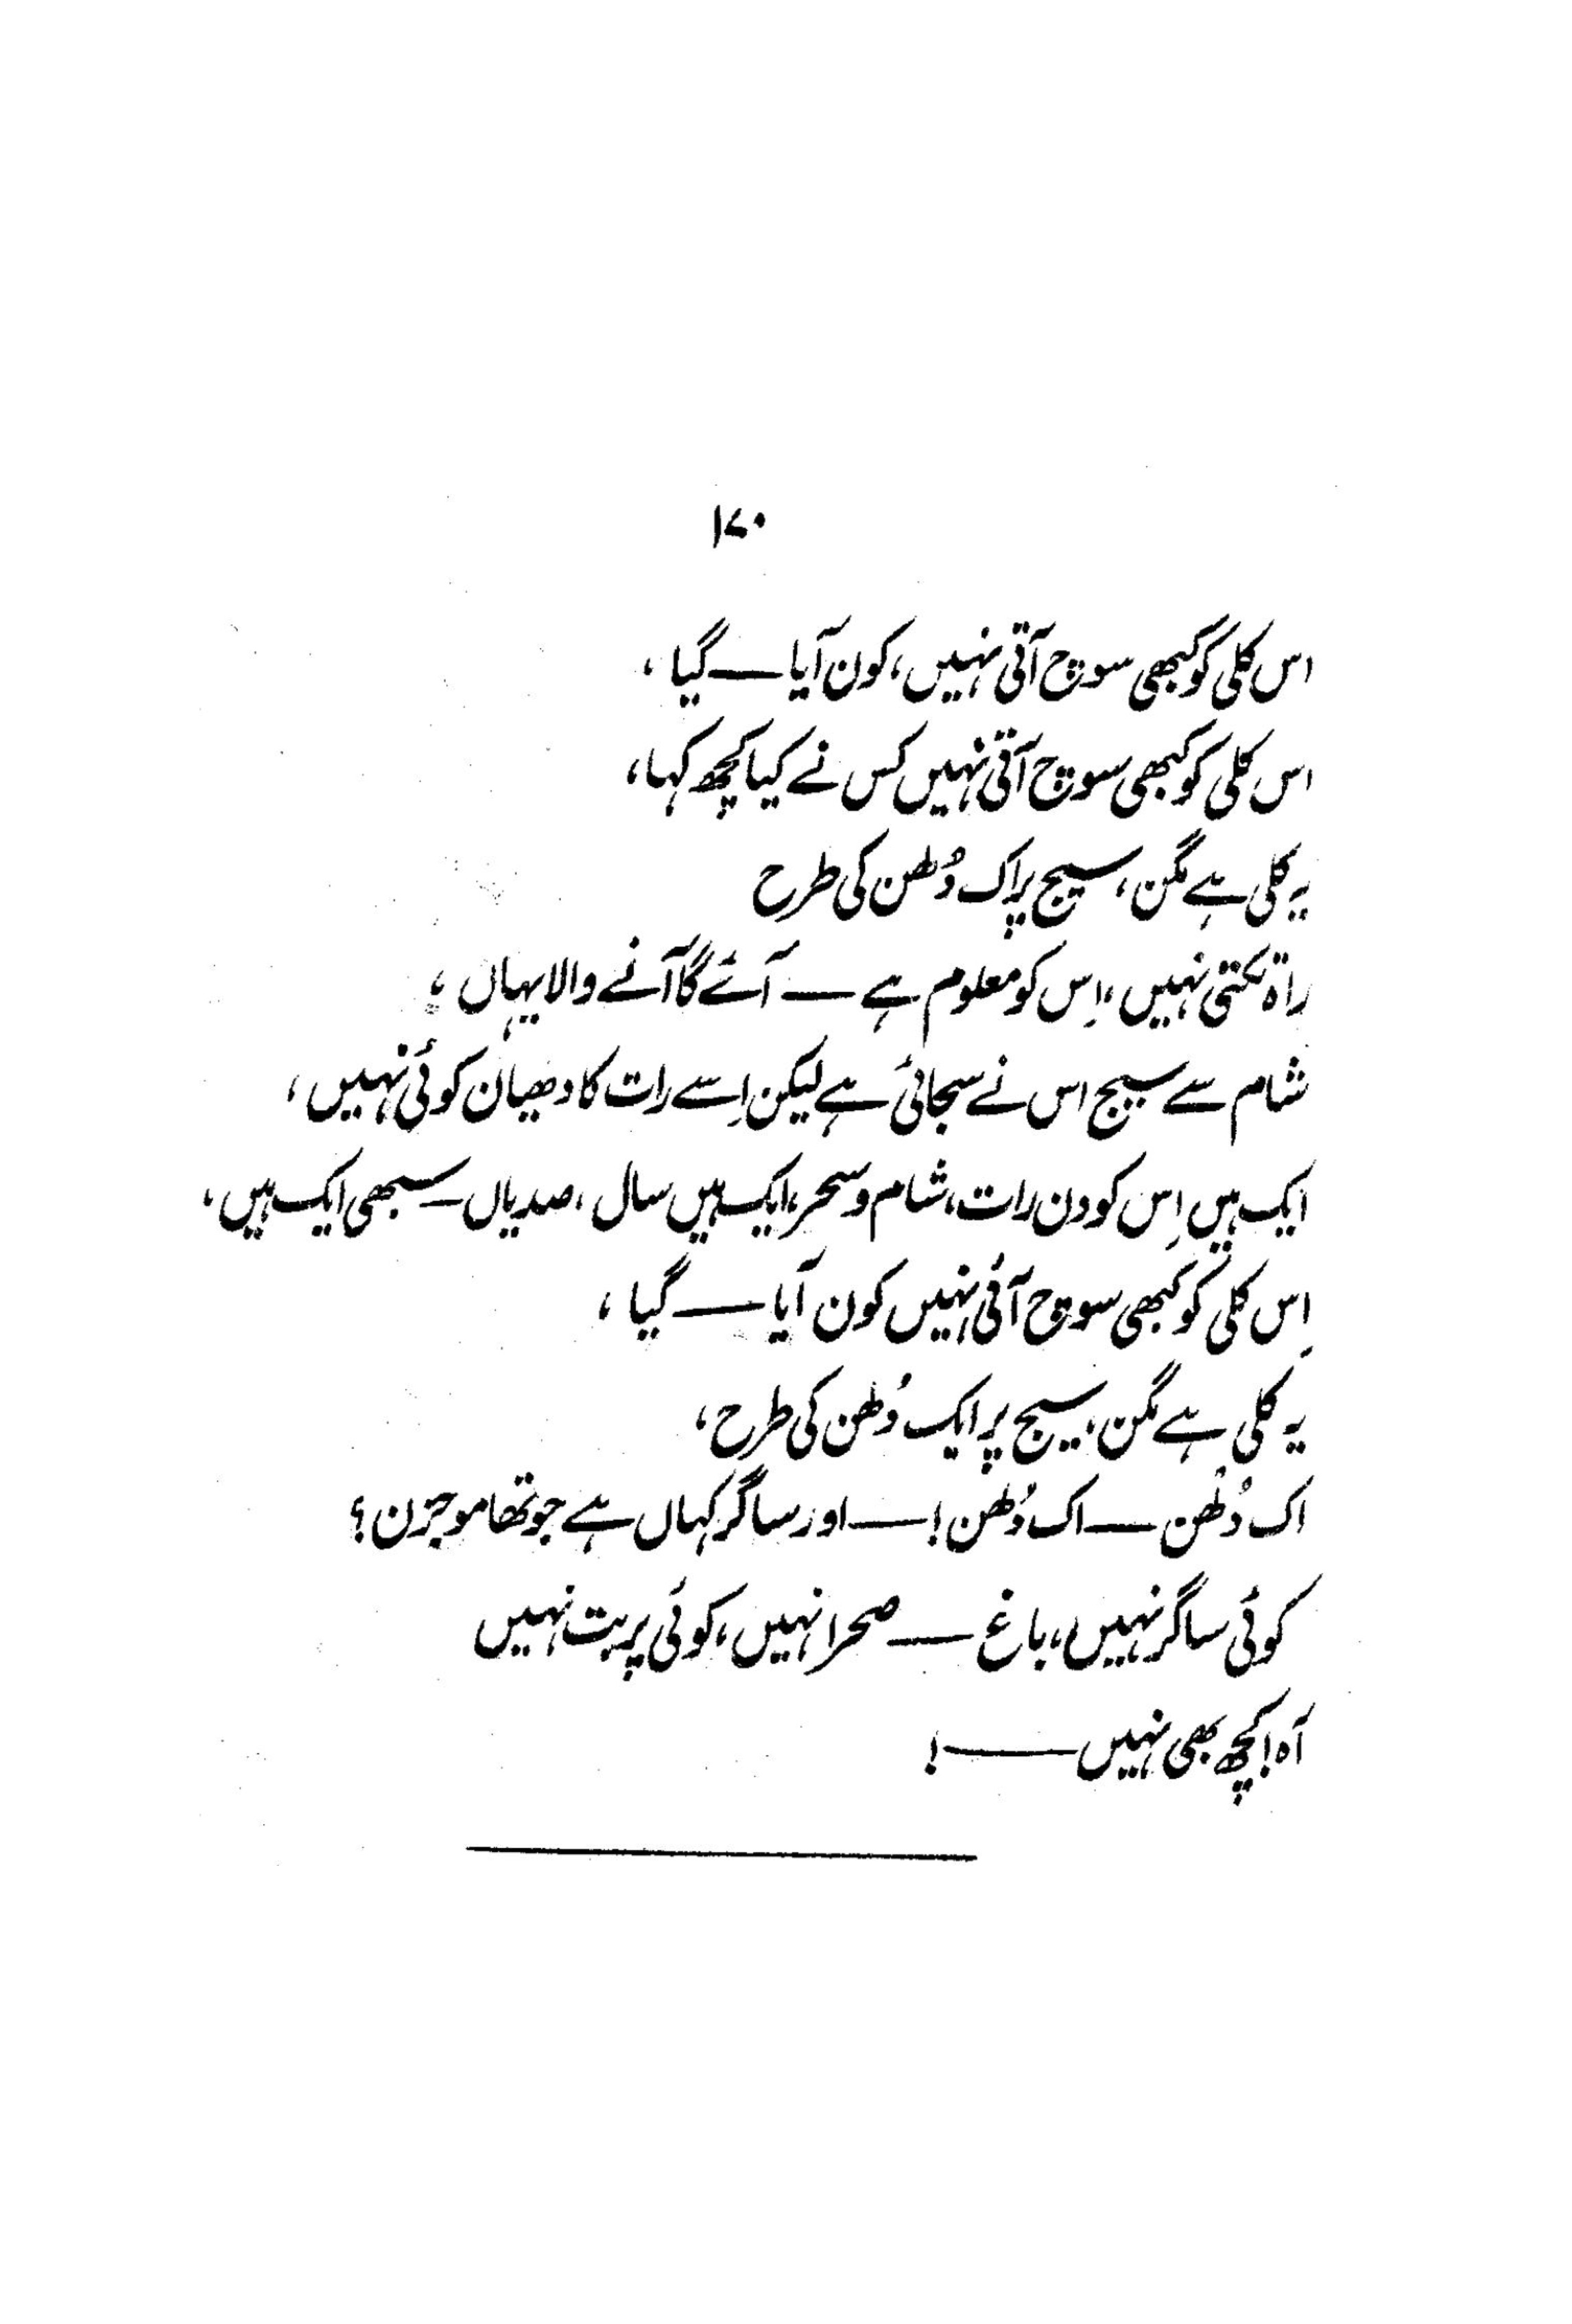 ۱۷۰
اس کلی کو کبھی سوچ آتی نہیں، کون آیا — گیا،
اس کلی کو کبھی سوچ آتی نہیں کس نے کیا کچھ کہا،
یہ کلی ہے مگن، سیج پر اک دُلھن کی طرح
راہ تکتی نہیں، اِس کو معلوم ہے — آئے گا آنے والا یہاں،
شام سے سیج اس نے سجائی ہے لیکن اِسے رات کا دھیان کوئی نہیں،
ایک ہیں اِس کو دن رات، شام و سحر، ایک ہیں سال، صدیاں — سبھی ایک ہیں،
اِس کلی کو کبھی سوچ آئی نہیں کون آیا — گیا،
یہ کلی ہے مگن، سیج پر ایک دُلھن کی طرح،
اک دُلھن — اک دُلھن! — اور ساگر کہاں ہے جو تھا موجزن؟
کوئی ساگر نہیں، باغ — صحرا نہیں، کوئی پربت نہیں
آہ! کچھ بھی نہیں — !